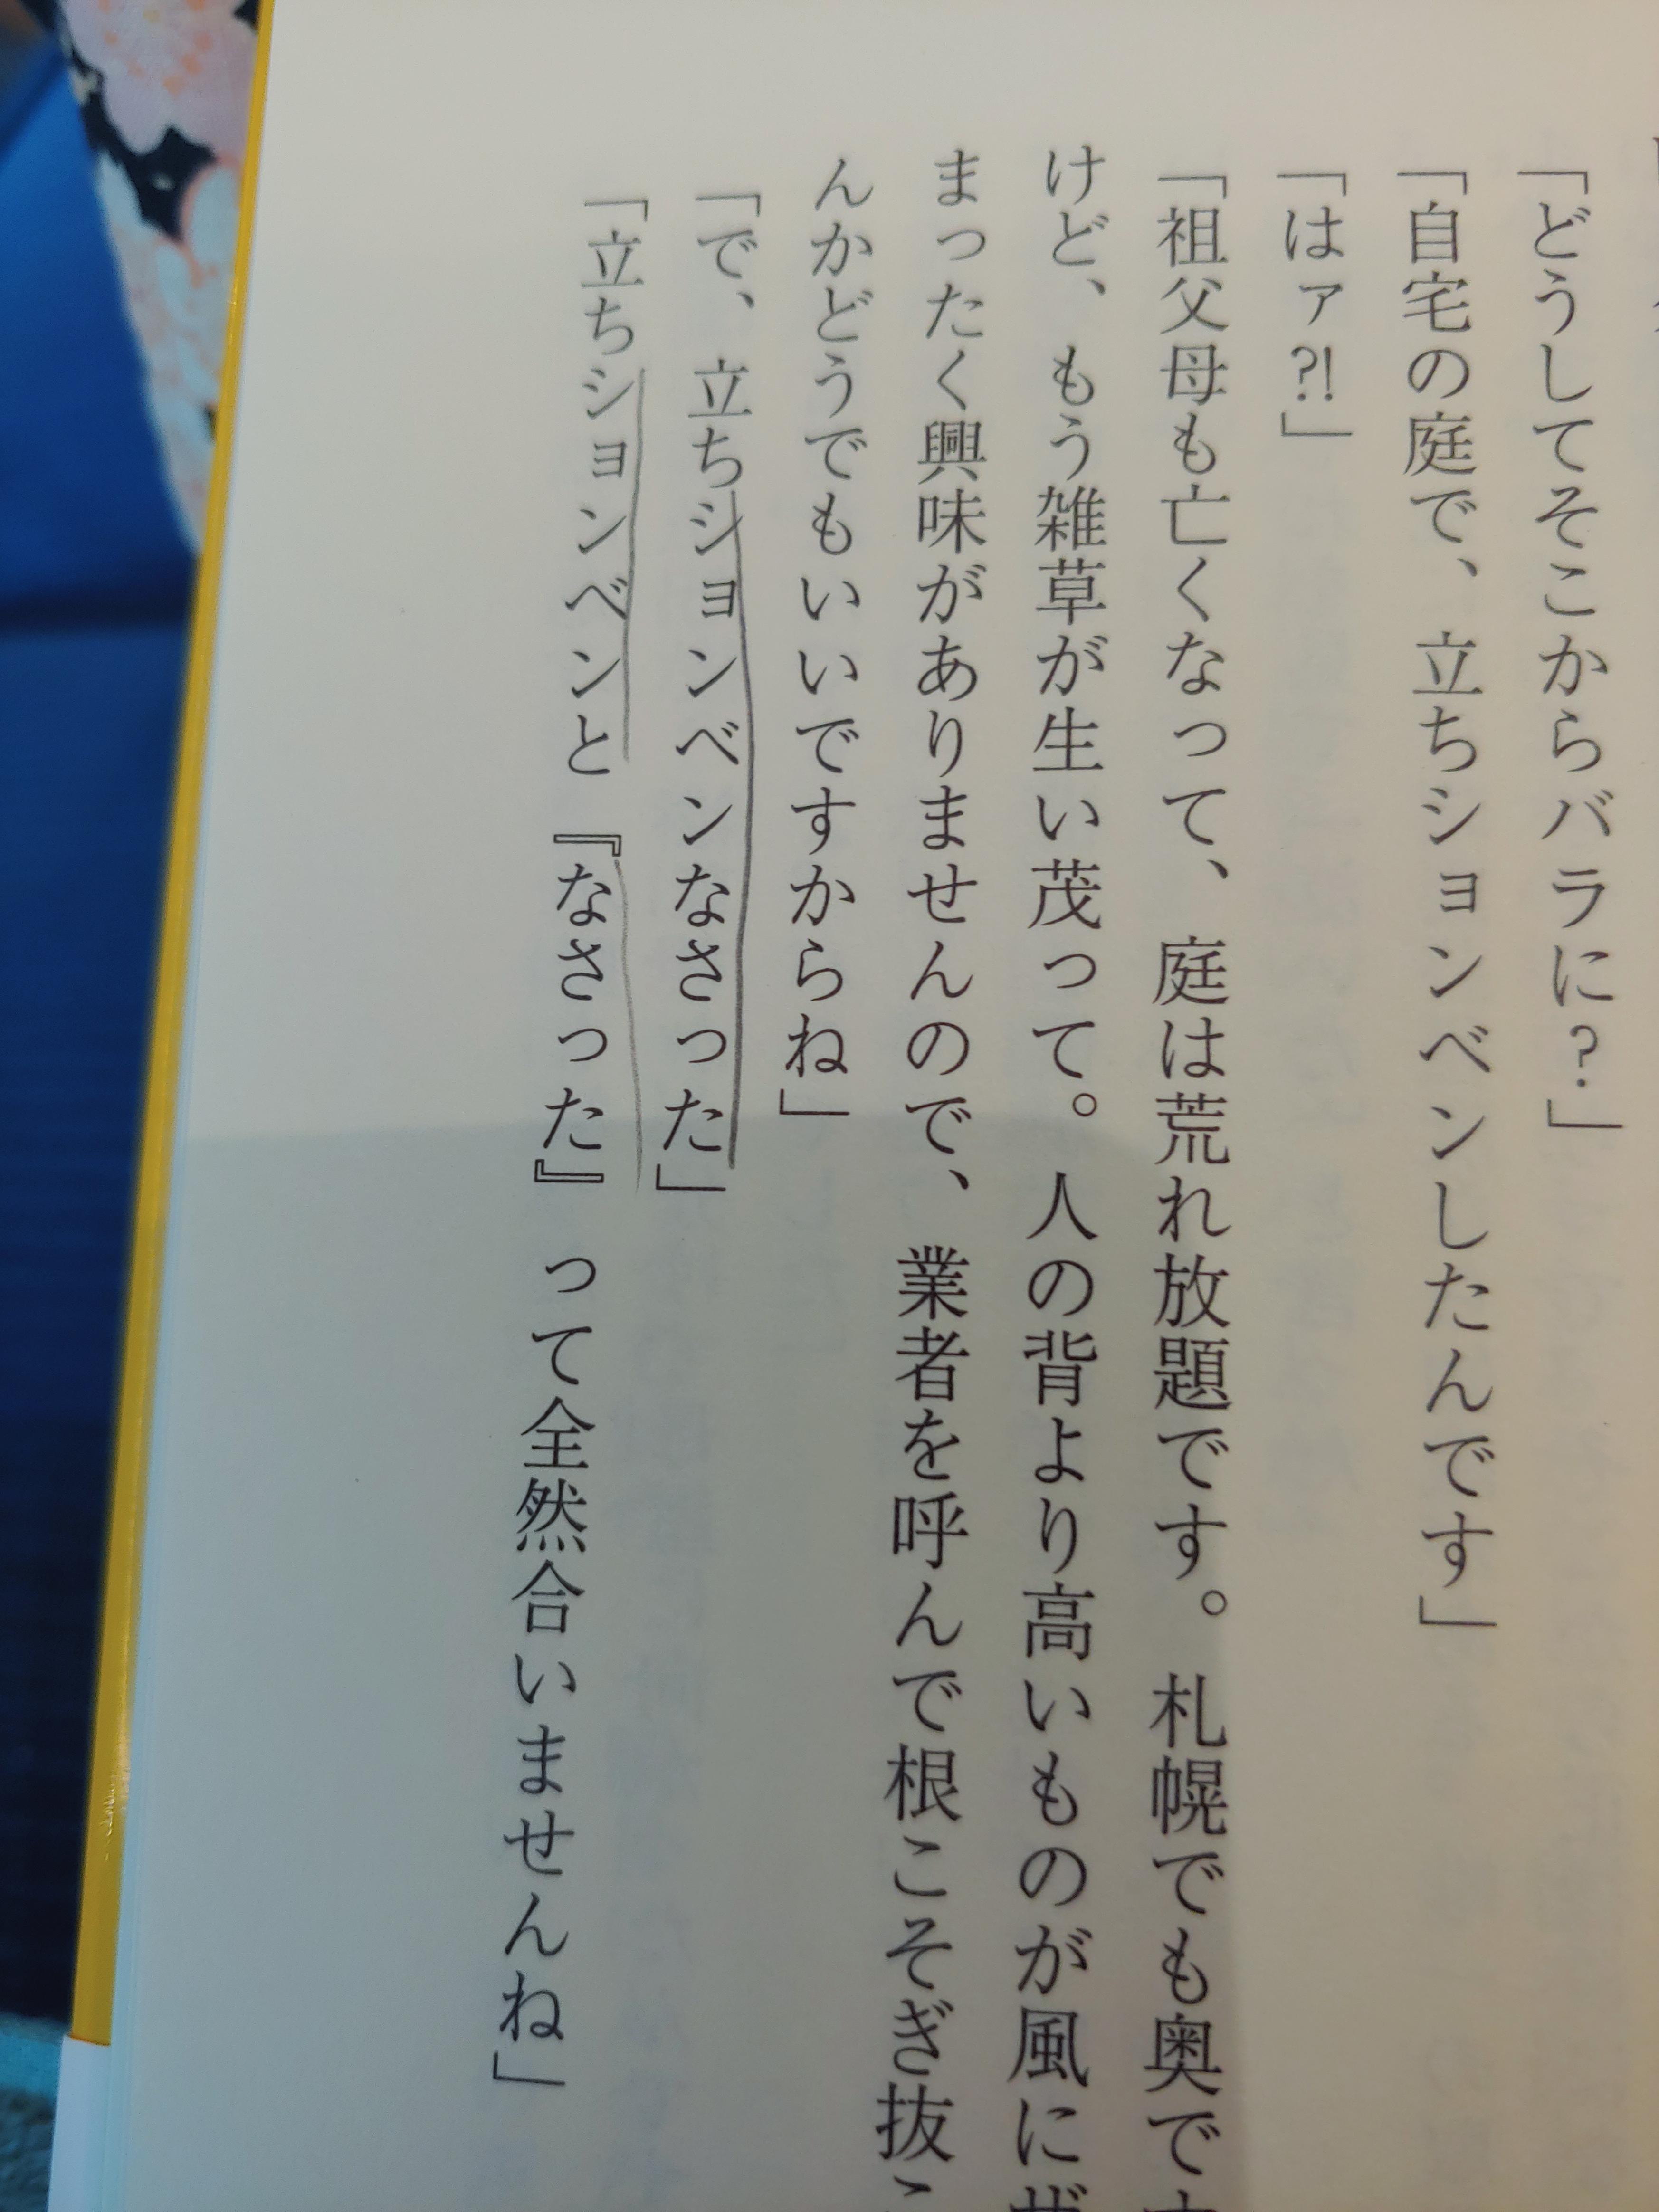 「どうしてそこからバラに？」
「自宅の庭で、立ちションベンしたんです」
「はァ?!」
「祖父母も亡くなって、庭は荒れ放題です。札幌でも奥で
けど、もう雑草が生い茂って。人の背より高いものが風に
まったく興味がありませんので、業者を呼んで根こそぎ抜こ
んかどうでもいいですからね」
「で、立ちションベンなさった」
「立ちションベンと『なさった』って全然合いませんね」